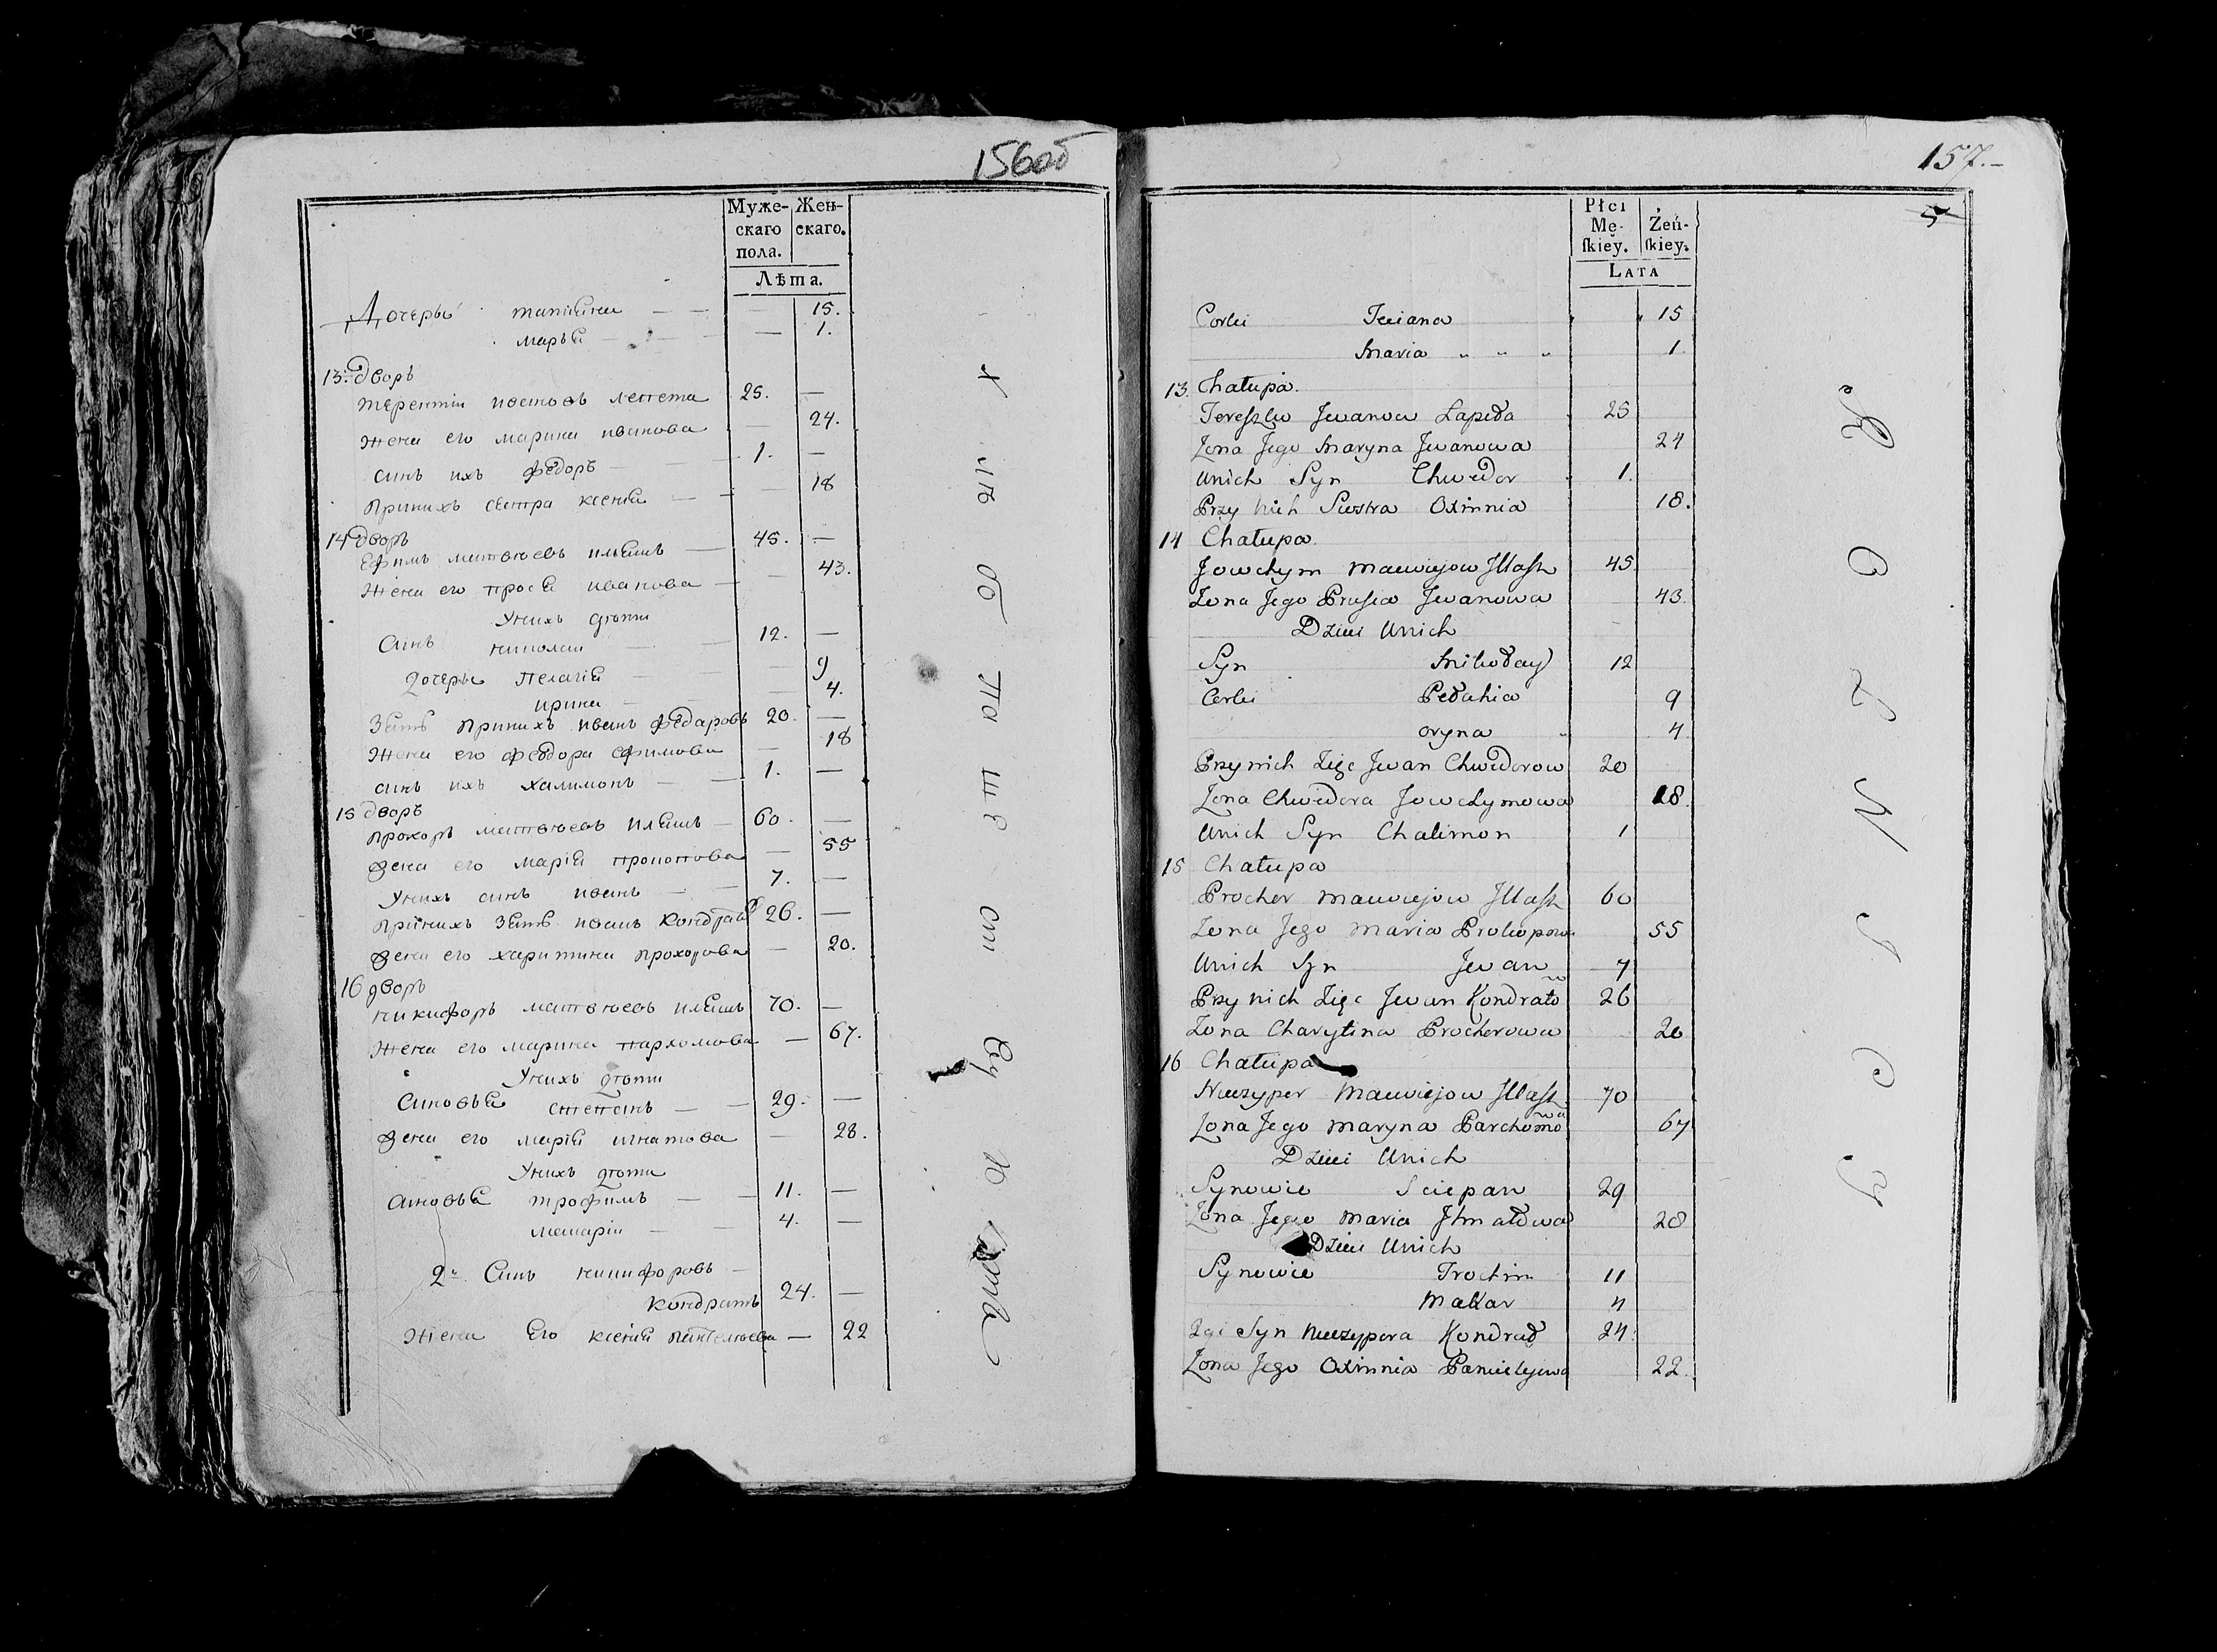 156об
Муже-
скаго
пола.
Жен-
скаго.
Лѣта.
Дочерьи татияна — — — 15.
марья — — — 1.
13. дворъ
терентiи ивановъ лепета 25. —
жена его марина иванова — 24.
синъ ихъ федоръ — 1. —
принихъ сестра ксения — — 18
14 дворъ
Ефимъ матвѣевъ иляшъ — 45. —
Жена его прося иванова — — 43.
Унихъ дѣти
Синъ николаи — 12. —
дочеры пелагiя — — 9
ирина — — 4.
Зять принихъ иванъ федаровъ 20. —
Жена его феодора ефимова — 18
синъ ихъ халимонъ — 1. —
15 дворъ
прохоръ матвѣевъ иляшъ — 60. —
жена его марiя прокопова — 55
Унихъ синъ иванъ — — 7. —
принихъ зять иванъ кондрато 26. —
жена его харитина прохорова — 20.
16 дворъ
никифоръ матвѣевъ иляшъ 70. —
Жена его марина пархомова — 67.
Унихъ дѣти
Синовья степанъ — — 29. —
жена его марiя игнатова — 28.
Унихъ дѣти
Синовья трофимъ — — 11. —
макарiи — — 4. —
2й Синъ никифоровъ —
кондратъ 24. —
Жена Его ксения пантелѣева — 22
157.-
5
Płci
Mę-
ſkiey.
Żeń-
ſkiey.
LATA
Corki Teciana 15
Maria „ „ „ 1
13. Chałupa.
Tereszko Jwanow Łapeta 25
Zona Jego Maryna Jwanowa 24
Unich Syn Chwedor 1.
Przy Nich Siostra Oxinnia 18.
14 Chałupa.
Jowchym Macwiejow Jllasz 45
Zona Jego Prusia Jwanowa 43.
Dzieci Unich
Syn Mikołay 12
Corki Pełahia 9
Oryna „ 4
Przy nich Zięc Jwan Chwedorow 20
Zona Chwedora Jowchymowa 18.
Unich Syn Chalimon 1
15 Chałupa
Prochor Macwiejow Jllasz 60
Zona Jego Maria Prokopow 55
Unich Syn Jwan 7
Przy nich Zięc Jwan Kondratow 26
Zona Charytina Prochorowa 20
16 Chałupa
Niczypor Macwiejow Jllasz 70
Zona Jego Maryna Parchomowa 67
Dzieci Unich
Synowie Sciepan 29
Zona Jego Maria Jhnatowa 28
Dzieci Unich
Synowie Trochim 11
Makar 4
2gi Syn Niczypora Kondrad 24
Zona Jego Oxinnia Pancielejewa 22.